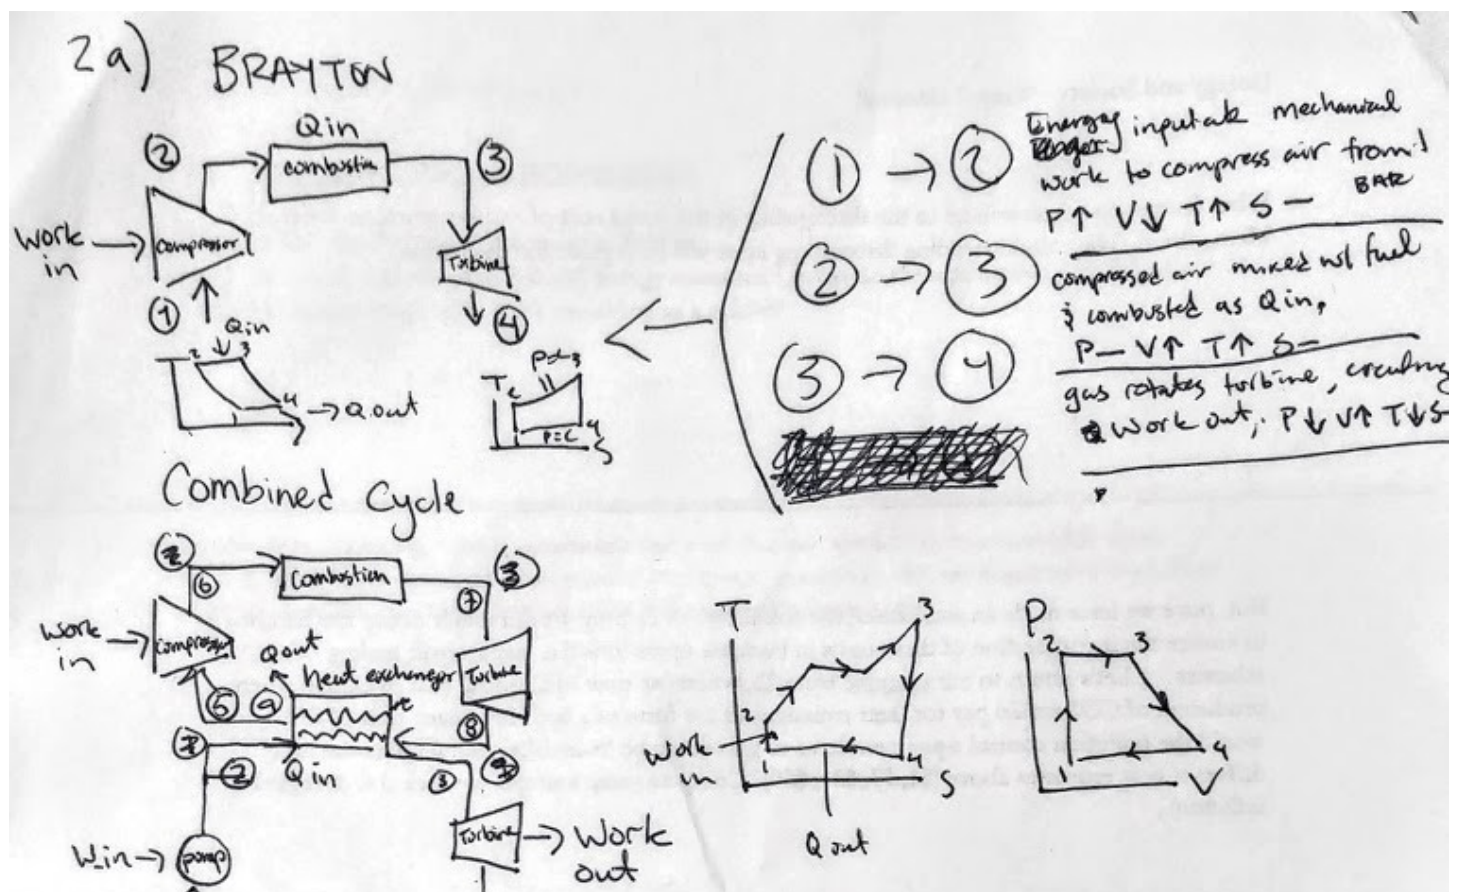 2a) BRAYTON
Qin
② combustion ③
work in → compressor
Turbine
① ④
Qin
2 3
4 → Q out
1
T
2 P=c 3
P=C 4
S
① → ② Energy input as mechanical
work to compress air from 1
BAR
P↑ V↓ T↑ S —
② → ③ compressed air mixed w/ fuel
& combusted as Qin,
P— V↑ T↑ S—
③ → ④ gas rotates turbine, creating
Work out, P↓ V↑ T↓ S-
Combined Cycle
② Combustion ③
⑥ ⑦
work in → compressor
Qout heat exchanger Turbine
⑤ ⑨ ⑧
② Qin ③
W_in → pump
Turbine → Work out
T
3
2
work in
1 4
S
Q out
P
2 3
1 4
V